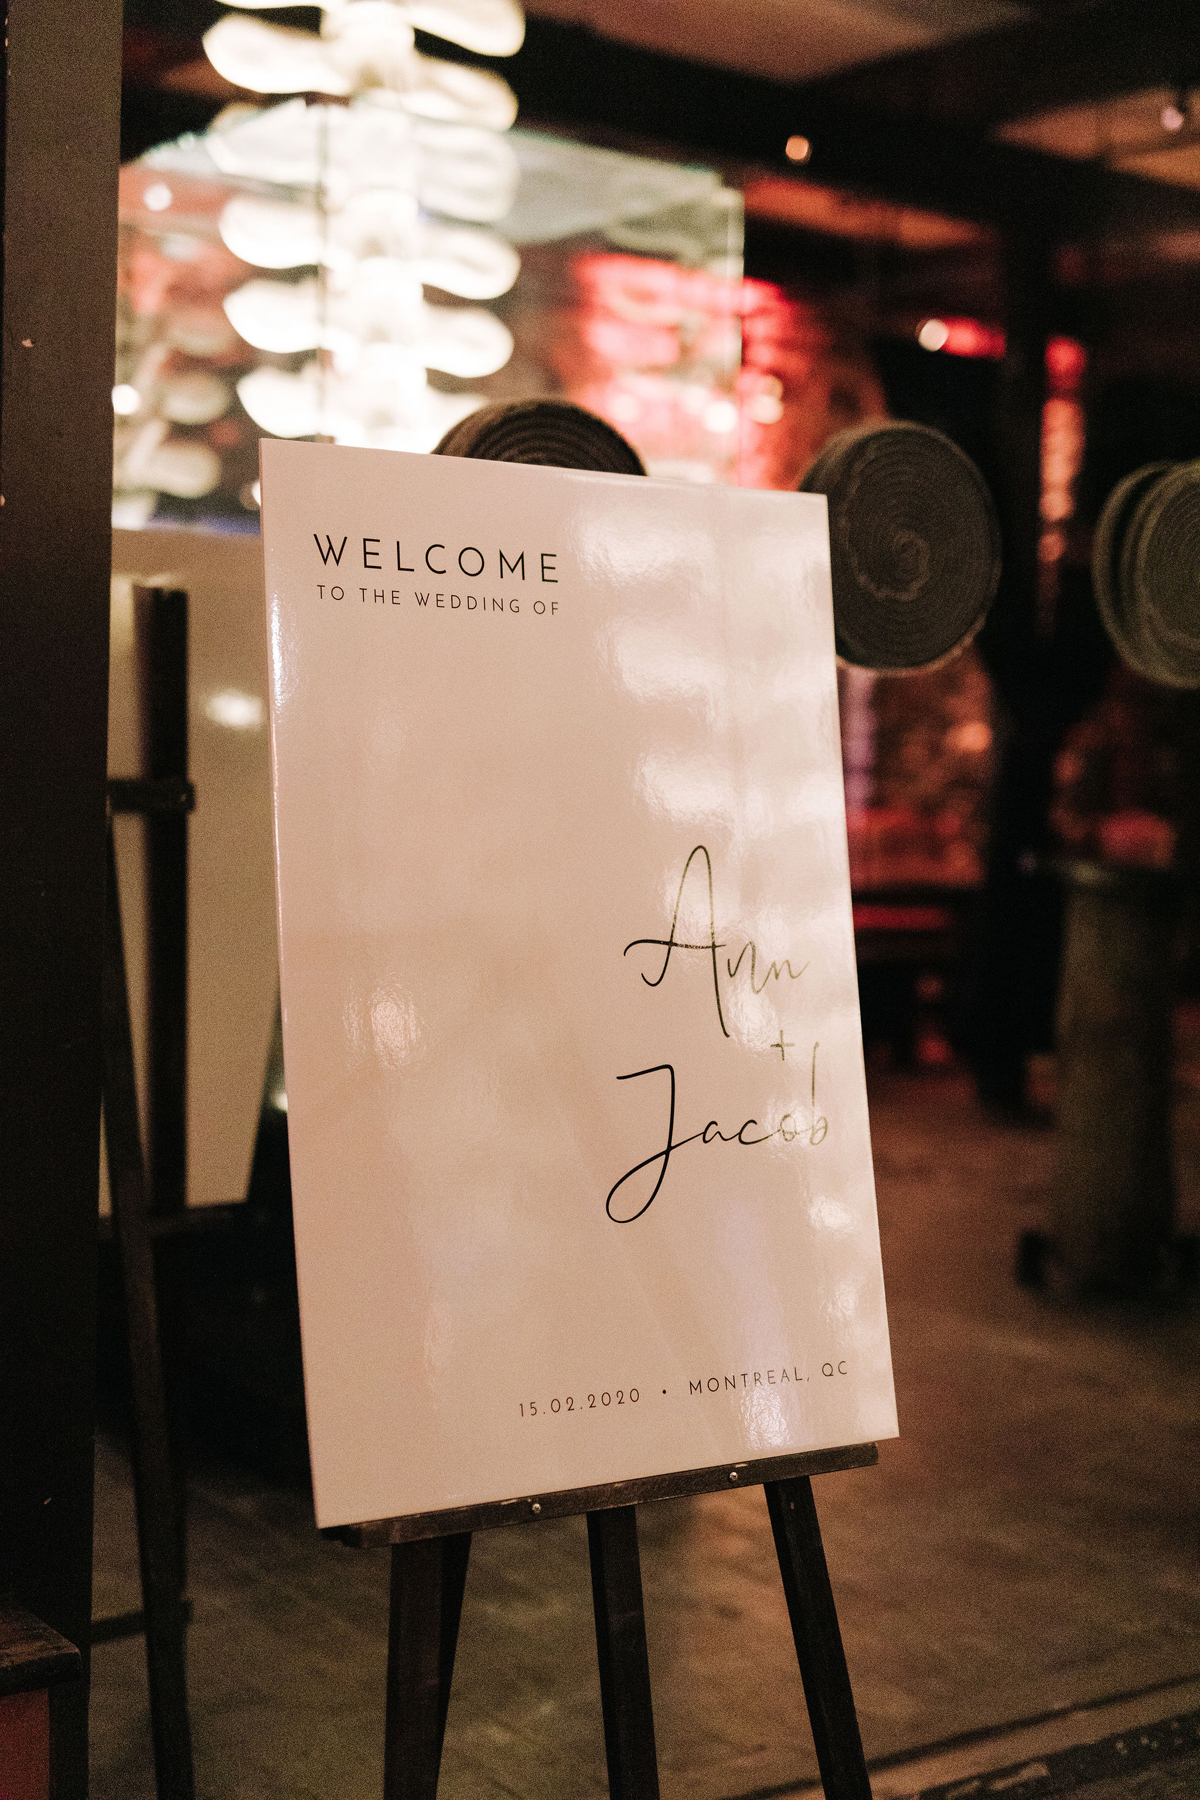 WELCOME
TO THE WEDDING OF
Ann
+
Jacob
15.02.2020 • MONTREAL, QC